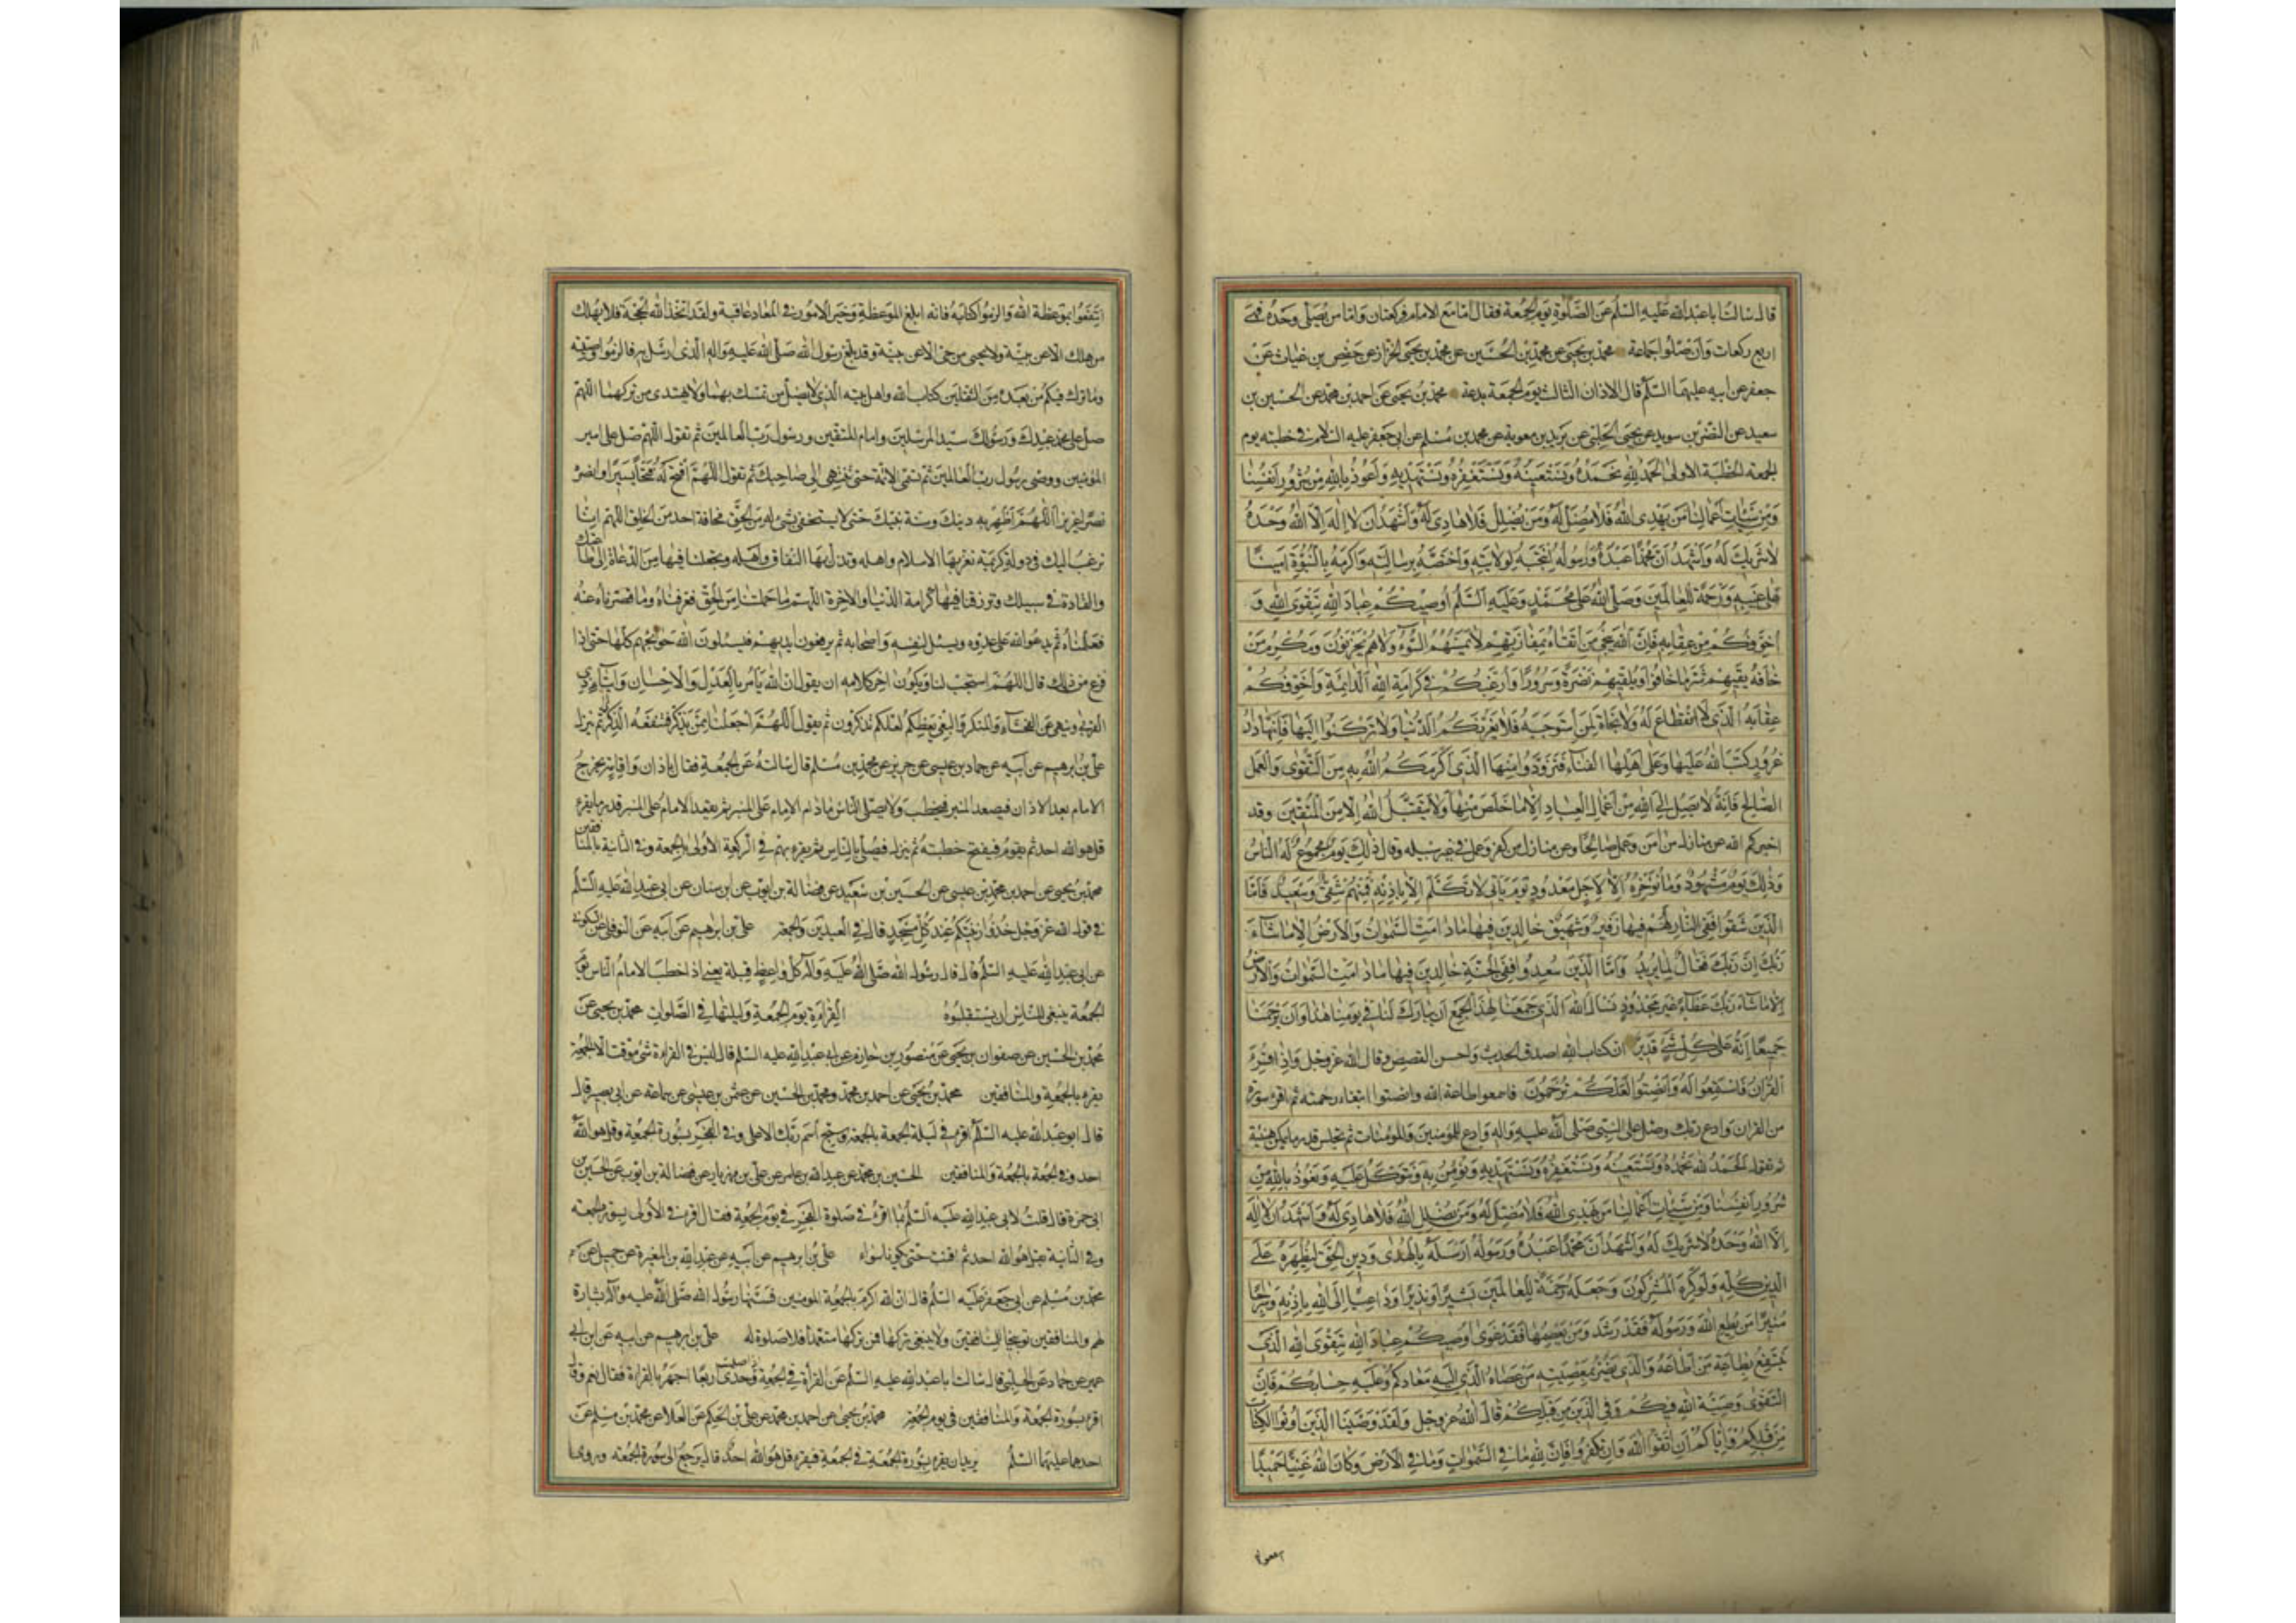 قال سالت ابا عبد الله عليه السلم عن الصلوة يوم الجمعة فقال اما مع الامام فركعتان واما من يصلي وحده فهي
اربع ركعات وان صلوا جماعة محمد بن يحيى عن محمد بن الحسين عن محمد بن يحيى الخزاز عن حفص بن غياث عن
جعفر عن ابيه عليهما السلم قال الاذان الثالث يوم الجمعة بدعة محمد بن يحيى عن احمد بن محمد عن الحسين بن
سعيد عن النضر بن سويد عن يحيى الحلبي عن بريد بن معوية عن محمد بن مسلم عن ابي جعفر عليه السلام في خطبة يوم
الجمعة الخطبة الاولى الحمد لله نحمده ونستعينه ونستغفره ونستهديه واعوذ بالله من شرور انفسنا
ومن سيئات اعمالنا من يهدي الله فلا مضل له ومن يضلل فلا هادي له واشهد ان لا اله الا الله وحده
لا شريك له واشهد ان محمدا عبده ورسوله انتجبه لولايته واختصه برسالته واكرمه بالنبوة امينا
على غيبه ورحمة للعالمين وصلى الله على محمد وعليه السلم اوصيكم عباد الله بتقوى الله و
اخوفكم من عقابه فان الله ينجي من اتقاه بمفازتهم لا يمسهم السوء ولا هم يحزنون ومكرم من
خافه يقيهم شر ما خافوا ويلقيهم نضرة وسرورا وارغبكم في كرامة الله الدائمة واخوفكم
عقابه الذي لا انقطاع له ولا نجاة لمن استوجبه فلا يغرنكم الدنيا ولا تركنوا اليها فانها دار
غرور كتب الله عليها وعلى اهلها الفناء فتزودوا منها الذي اكرمكم الله به من التقوى والعمل
الصالح فانه لا يصل الى الله من اعمال العباد الا ما خلص منها ولا يتقبل الله الا من المتقين وقد
اخبركم الله عن منازل من امن وعمل صالحا وعن منازل من كفر وعمل في غير سبيله وقال ذلك يوم مجموع له الناس
وذلك يوم مشهود وما نؤخره الا لاجل معدود يوم ياتي لا تكلم الا باذنه فمنهم شقي وسعيد فاما
الذين شقوا ففي النار لهم فيها زفير وشهيق خالدين فيها ما دامت السموات والارض الا ما شاء
ربك ان ربك فعال لما يريد واما الذين سعدوا ففي الجنة خالدين فيها ما دامت السموات والارض
الا ما شاء ربك عطاء غير مجذوذ نسال الله الذي جمعنا لهذا الجمع ان يبارك لنا في يومنا هذا وان يرحمنا
جميعا انه على كل شيء قدير ان كتاب الله اصدق الحديث واحسن القصص وقال الله عز وجل واذا قرئ
القران فاستمعوا له وانصتوا لعلكم ترحمون فاسمعوا طاعة الله وانصتوا ابتغاء رحمته ثم اقرء سورة
من القران وادع ربك وصل على النبي صلى الله عليه واله وادع للمؤمنين وللمؤمنات ثم تجلس قدر ما يمكن هنيئة
ثم تقول الحمد لله نحمده ونستعينه ونستغفره ونستهديه ونؤمن به ونتوكل عليه ونعوذ بالله من
شرور انفسنا ومن سيئات اعمالنا من يهدي الله فلا مضل له ومن يضلل الله فلا هادي له واشهد ان لا اله
الا الله وحده لا شريك له واشهد ان محمدا عبده ورسوله ارسله بالهدى ودين الحق ليظهره على
الدين كله ولو كره المشركون وجعله رحمة للعالمين بشيرا ونذيرا وداعيا الى الله باذنه وسراجا
منيرا من يطع الله ورسوله فقد رشد ومن يعصهما فقد غوى اوصيكم عباد الله بتقوى الله الذي
ينتفع بطاعته من اطاعه والذي يضر بمعصيته من عصاه الذي اليه معادكم وعليه حسابكم فان
التقوى وصية الله فيكم وفي الذين من قبلكم قال الله عز وجل ولقد وصينا الذين اوتوا الكتاب
من قبلكم واياكم ان اتقوا الله وان تكفروا فان لله ما في السموات وما في الارض وكان الله غنيا حميدا
انتفعوا بموعظة الله والزموا كتابه فانه ابلغ الموعظة وخير الامور في المعاد عاقبة ولقد اتخذ الله الحجة فلا يهلك
من هلك الا عن بينة ولا يحيى من حي الا عن بينة وقد بلغ رسول الله صلى الله عليه واله الذي ارسل به فالزموا وصيته
وما ترك فيكم من بعده من الثقلين كتاب الله واهل بيته الذي لا يضل من تمسك بهما ولا يهتدي من تركهما اللهم
صل على محمد عبدك ورسولك سيد المرسلين وامام المتقين ورسول رب العالمين ثم تقول اللهم صل على امير
المؤمنين ووصي رسول رب العالمين ثم تسمي الائمة حتى تنتهي الى صاحبك ثم تقول اللهم افتح له فتحا يسيرا وانصره
نصرا عزيزا اللهم اظهر به دينك وسنة نبيك حتى لا يستخفي بشيء من الحق مخافة احد من الخلق اللهم انا
نرغب اليك في دولة كريمة تعز بها الاسلام واهله وتذل بها النفاق واهله وتجعلنا فيها من الدعاة الى طاعتك
والقادة في سبيلك وترزقنا فيها كرامة الدنيا والاخرة اللهم ما حملتنا من الحق فعرفناه وما قصرنا عنه
فعلمناه ثم يدعو الله على عدوه ويسئل لنفسه واصحابه ثم يرفعون ايديهم فيسئلون الله حوائجهم كلها حتى اذا
فرغ من ذلك قال اللهم استجب لنا ويكون اخر كلامه ان يقول ان الله يامر بالعدل والاحسان وايتاء ذي
القربى وينهى عن الفحشاء والمنكر والبغي يعظكم لعلكم تذكرون ثم يقول اللهم اجعلنا ممن تذكر فتنفعه الذكرى ثم ينزل
علي بن ابرهيم عن ابيه عن حماد بن عيسى عن حريز عن محمد بن مسلم قال سالته عن الجمعة فقال باذان واقامة يخرج
الامام بعد الاذان فيصعد المنبر فيخطب ولا يصلي الناس ما دام الامام على المنبر ثم يقعد الامام على المنبر قدر ما يقرء
قل هو الله احد ثم يقوم فيفتتح خطبته ثم ينزل فيصلي بالناس ثم يقرء بهم في الركعة الاولى بالجمعة وفي الثانية بالمنافقين
محمد بن يحيى عن احمد بن محمد بن عيسى عن الحسين بن سعيد عن فضالة بن ايوب عن ابن سنان عن ابي عبد الله عليه السلم
في قول الله عز وجل خذوا زينتكم عند كل مسجد قال في العيدين والجمعة علي بن ابراهيم عن ابيه عن النوفلي عن السكوني
عن ابي عبد الله عليه السلم قال قال رسول الله صلى الله عليه وآله كل واعظ قبلة يعني اذا خطب الامام الناس يوم
الجمعة ينبغي للناس ان يستقبلوه القراءة يوم الجمعة وليلتها في الصلوات محمد بن يحيى عن
محمد بن الحسين عن صفوان بن يحيى عن منصور بن حازم عن ابي عبد الله عليه السلم قال ليس في القراءة شيء موقت الا الجمعة
يقرء بالجمعة والمنافقين محمد بن يحيى عن احمد بن محمد ومحمد بن الحسين عن عثمن بن عيسى عن سماعة عن ابي بصير قال
قال ابو عبد الله عليه السلم اقرء في ليلة الجمعة بالجمعة وسبح اسم ربك الاعلى وفي الفجر بسورة الجمعة وقل هو الله
احد وفي الجمعة بالجمعة والمنافقين الحسين بن محمد عن عبد الله بن عامر عن علي بن مهزيار عن فضالة بن ايوب عن الحسين بن
ابي حمزة قال قلت لابي عبد الله عليه السلم بما اقرء في صلوة الفجر في يوم الجمعة فقال اقرء في الاولى بسورة الجمعة
وفي الثانية بقل هو الله احد ثم اقنت حتى تكونا سواء علي بن ابرهيم عن ابيه عن عبد الله بن المغيرة عن جميل عن
محمد بن مسلم عن ابي جعفر عليه السلم قال ان الله اكرم بالجمعة المومنين فسنها رسول الله صلى الله عليه وآله بشارة
لهم والمنافقين توبيخا للمنافقين ولا ينبغي تركها فمن تركها متعمدا فلا صلوة له علي بن ابرهيم عن ابيه عن ابن ابي
عمير عن حماد عن الحلبي قال سالت ابا عبد الله عليه السلم عن القراءة في الجمعة اذا صليت وحدي اربعا اجهر بالقراءة فقال نعم وقال
اقرء بسورة الجمعة والمنافقين في يوم الجمعة محمد بن يحيى عن احمد بن محمد عن علي بن الحكم عن العلا عن محمد بن مسلم عن
احدهما عليهما السلم يريد ان يقرء بسورة الجمعة في الجمعة فيقرء قل هو الله احد قال يرجع الى سورة الجمعة وروى